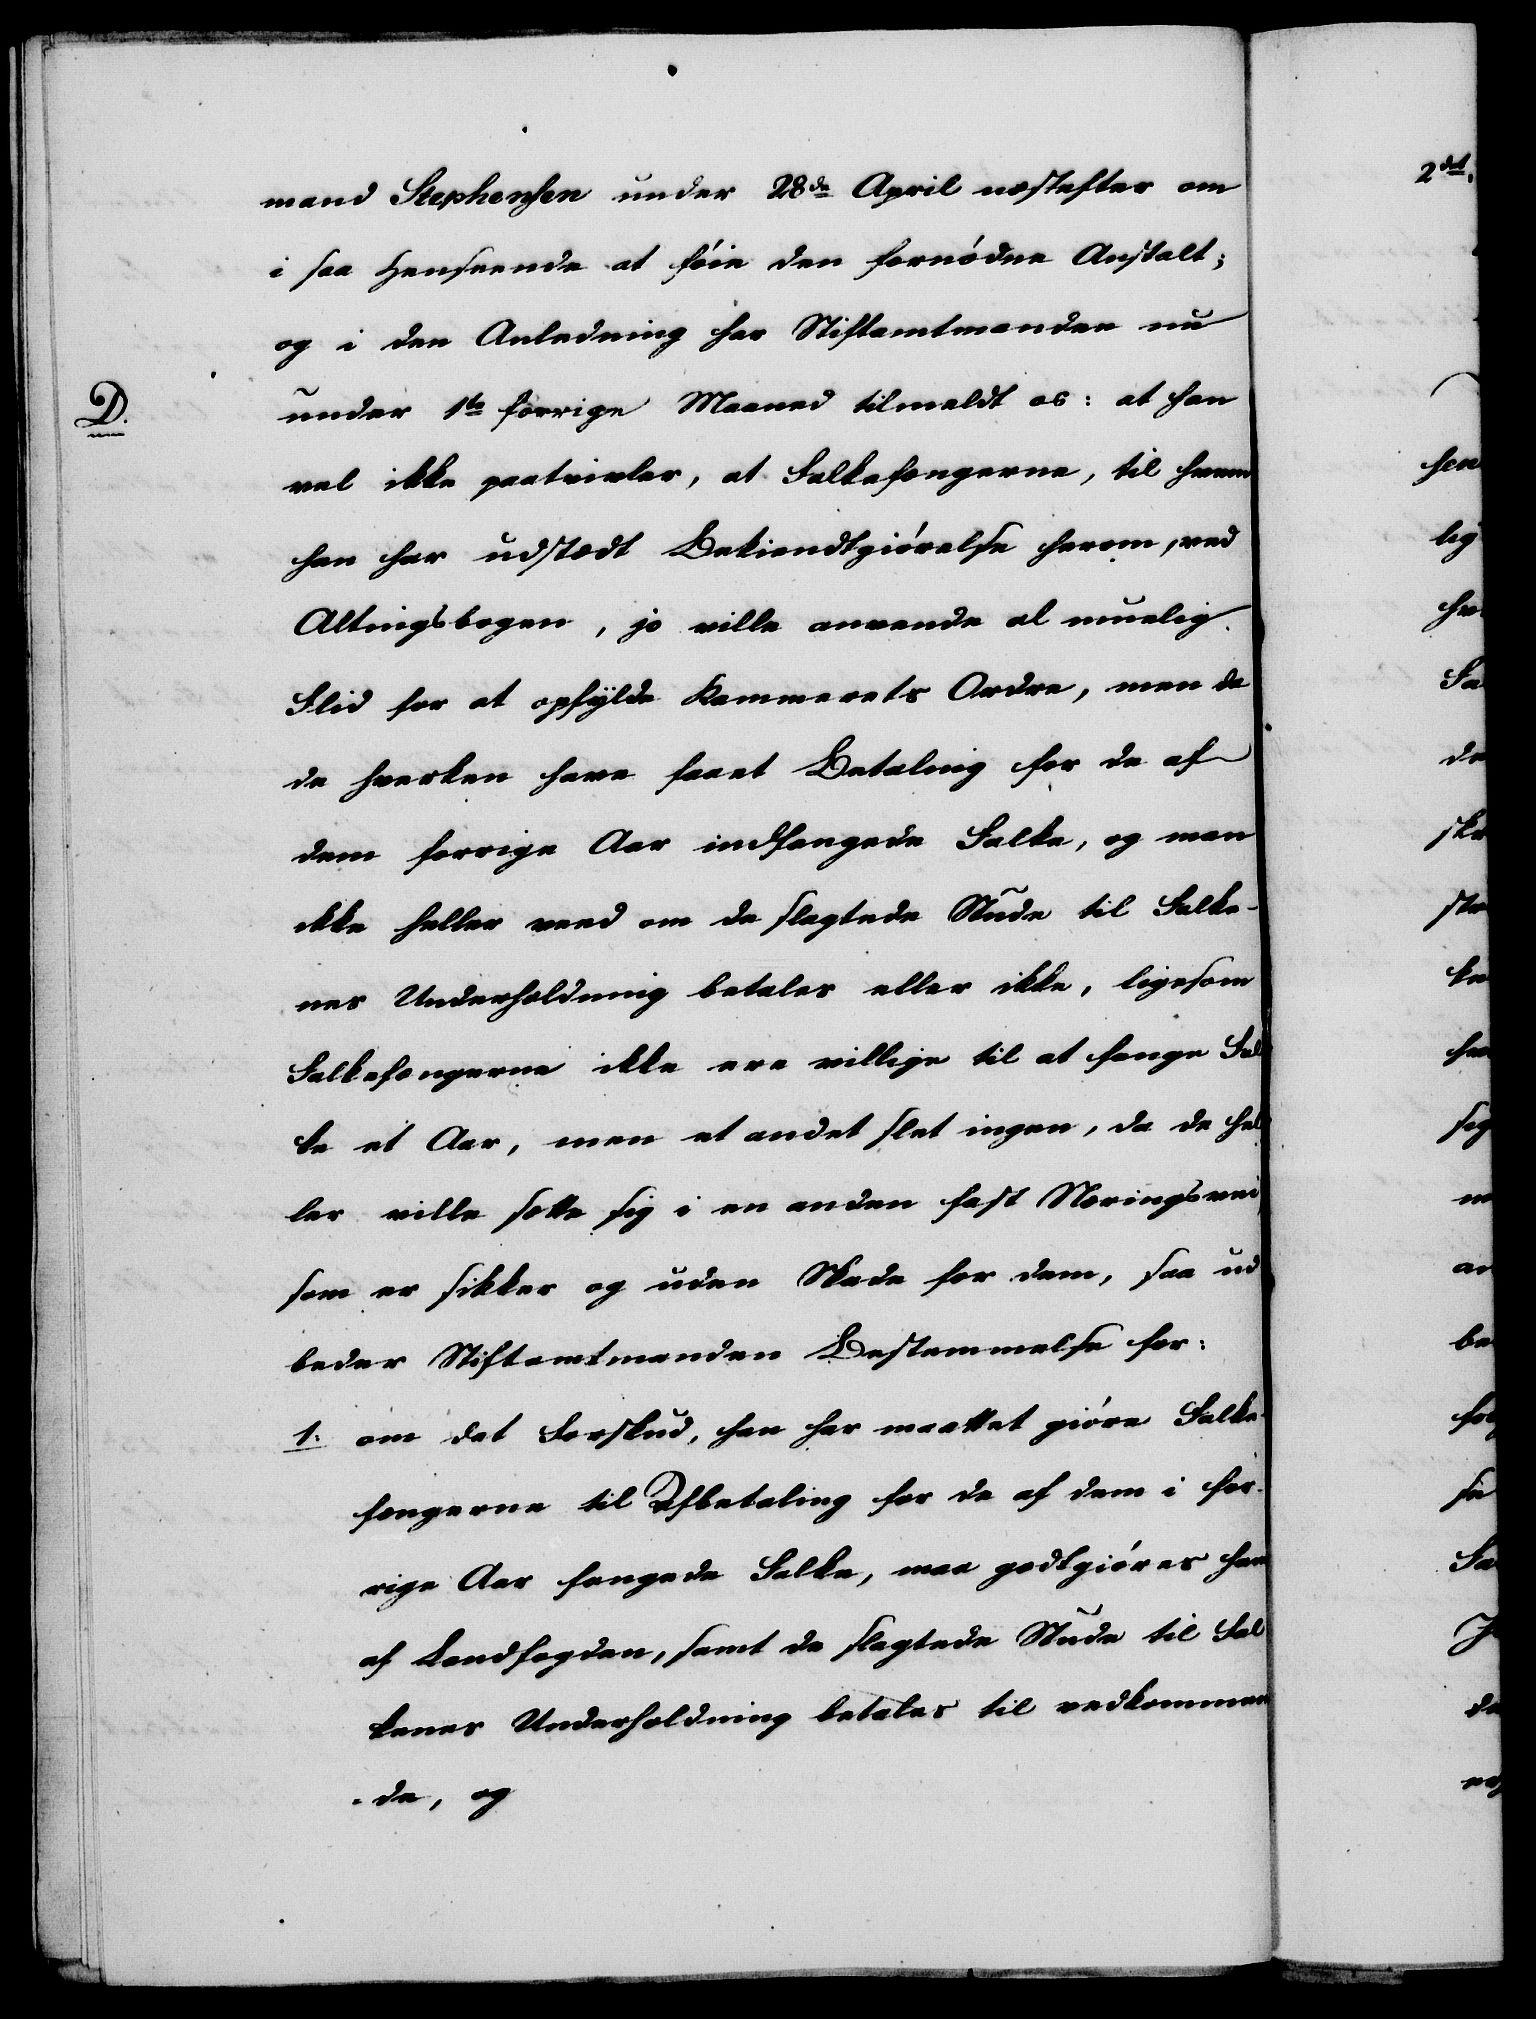 mand Stephensen under 28de April næstefter om
i saa Henseende at föie den fornödne Anstalt;
og i den Anledning har Stiftamtmanden nu
D.
under 1te forrige Maaned tilmeldt os: at han
vel ikke paatvivler, at Falkefangerne, til hvem
han har udstædt Bekiendtgiörelse herom, ved
Altingsbogen, jo ville anvende al muelig
Flid for at opfylde Kammerets Ordre, men da
de hverken have faaet Betaling for de af
dem forrige Aar indfangede Falke, og man
ikke heller veed om de slagtede Stude til Falke-
nes Underholdning betales eller ikke, ligesom
Falkefangerne ikke ere villige til at fange Fal
ke et Aar, men et andet slet ingen, da de hel
ler ville sætte sig i en anden fast Næringsvei
som er sikker og uden Skade for dem, saa ud
beder Stiftamtmanden Bestemmelse for:
1. om det Forskud, han har maattet giöre Falke-
fangerne til Afbetaling for de af dem i for-
rige Aar fangede Falke, maa godtgiöres ham
af Landfogden, samt de slagtede Stude til Fal
kenes Underholdning betales til vedkommen
de, og
2det.
sen
lig
hv
Fa
de
ske
ste
ke
han
sig
m
an
be
for
se
Fa
de